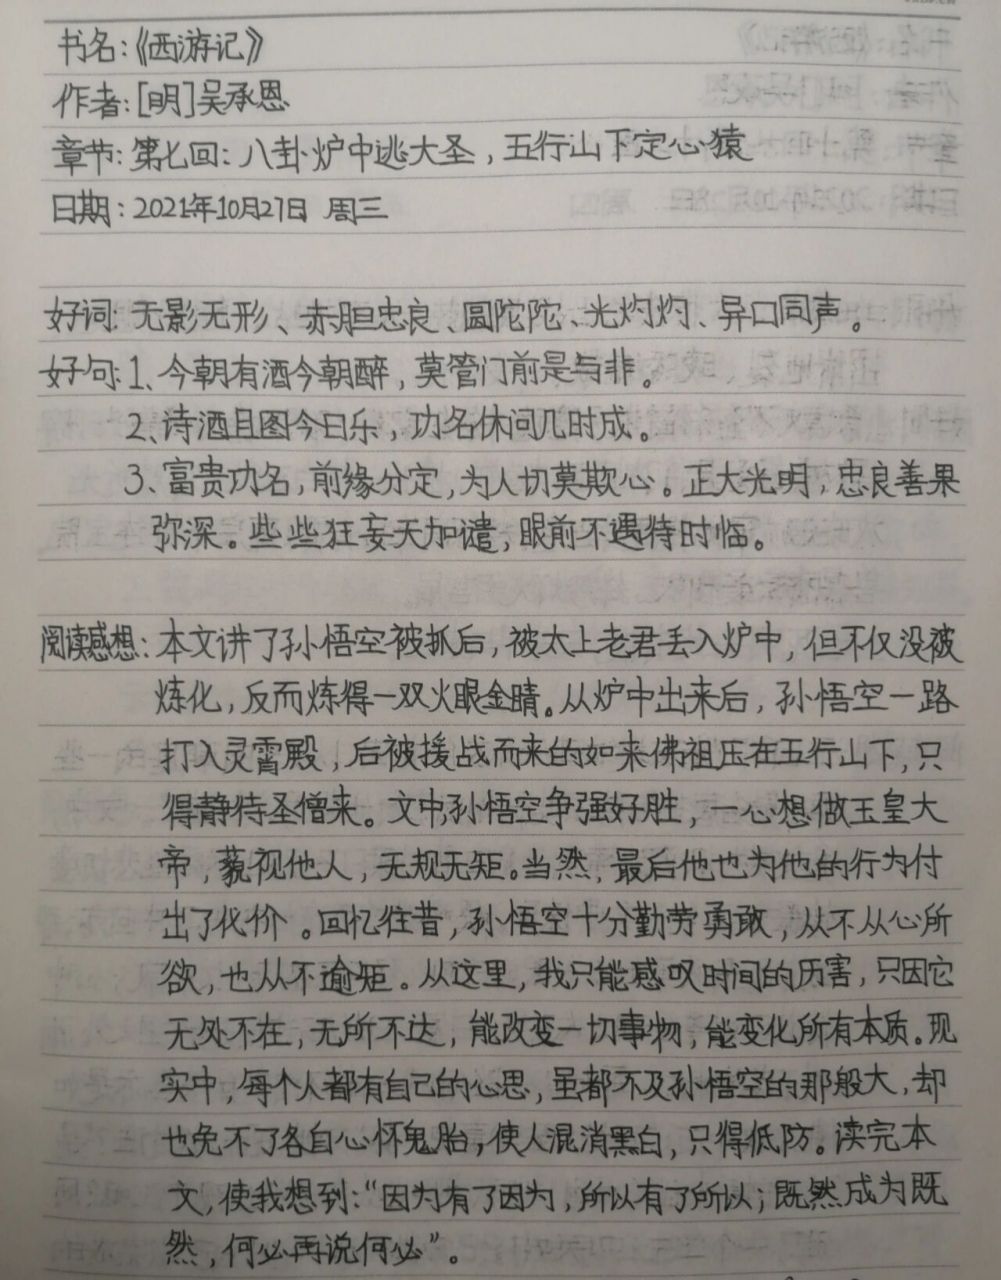 书名:《西游记》
作者:[明]吴承恩
章节:第七回:八卦炉中逃大圣,五行山下定心猿
日期:2021年10月27日 周三
好词:无影无形、赤胆忠良、圆陀陀、光灼灼、异口同声。
好句:1、今朝有酒今朝醉,莫管门前是与非。
2、诗酒且图今日乐,功名休问几时成。
3、富贵功名,前缘分定,为人切莫欺心。正大光明,忠良善果
弥深。些些狂妄天加谴,眼前不遇待时临。
阅读感想:本文讲了孙悟空被抓后,被太上老君丢入炉中,但不仅没被
炼化,反而炼得一双火眼金睛。从炉中出来后,孙悟空一路
打入灵霄殿,后被援战而来的如来佛祖压在五行山下,只
得静待圣僧来。文中孙悟空争强好胜,一心想做玉皇大
帝,藐视他人,无规无矩。当然,最后他也为他的行为付
出了代价。回忆往昔,孙悟空十分勤劳勇敢,从不从心所
欲,也从不逾矩。从这里,我只能感叹时间的历害,只因它
无处不在,无所不达,能改变一切事物,能变化所有本质。现
实中,每个人都有自己的心思,虽都不及孙悟空的那般大,却
也免不了各自心怀鬼胎,使人混淆黑白,只得低防。读完本
文,使我想到:“因为有了因为,所以有了所以;既然成为既
然,何必再说何必”。